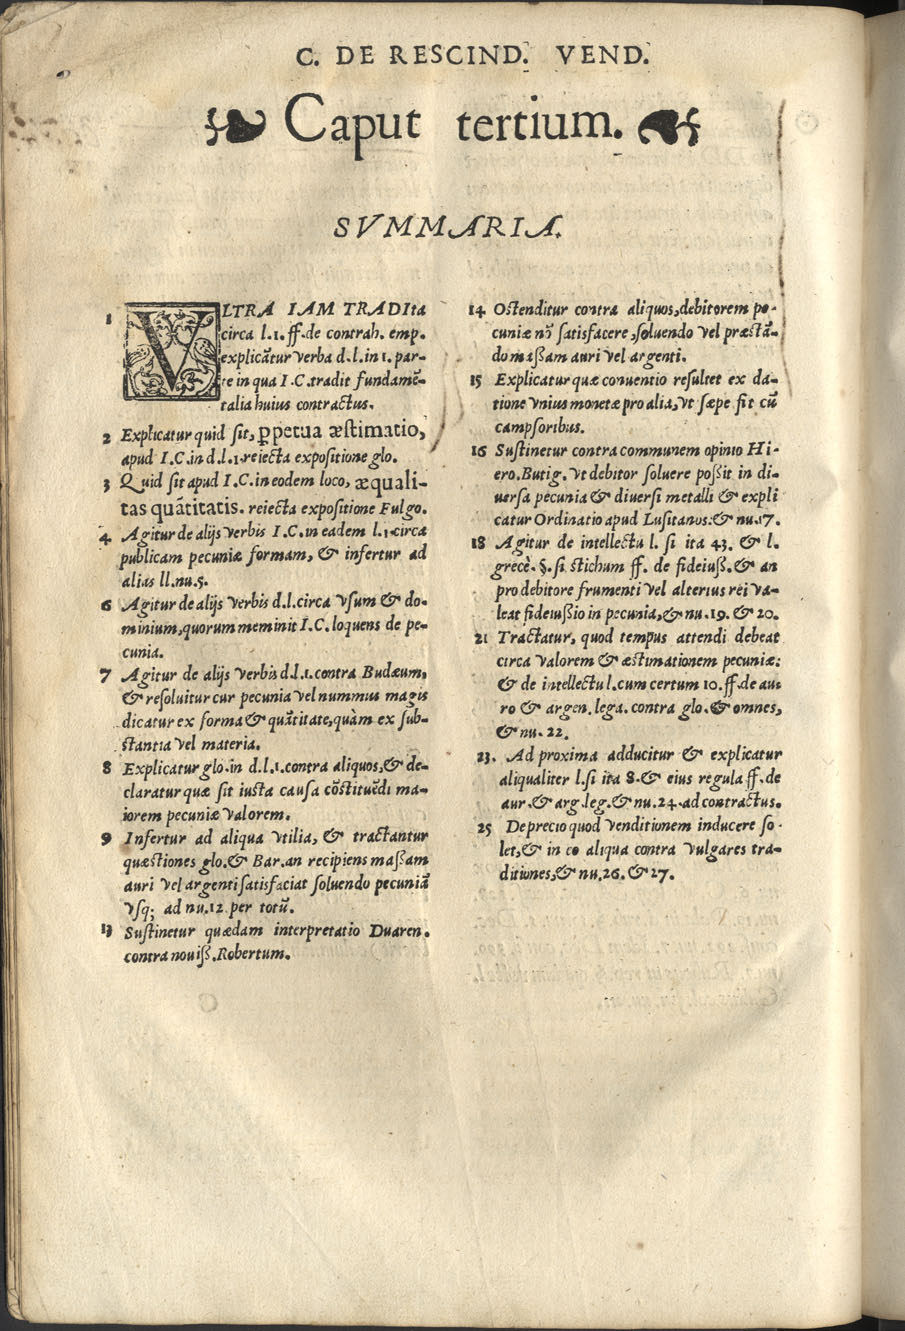 C. DE RESCIND. VEND.
Caput tertium.
SVMMARIA.
1 VLTRA IAM TRADIta
circa l.1.ff.de contrah. emp.
explicãtur verba d.l.in 1. par-
te in qua I.C.tradit fundamẽ-
talia huius contractus.
2 Explicatur quid sit, ꝑpetua æstimatio,
apud I.C.in d.l.1.reiecta expositione glo.
3 Quid sit apud I.C.in eodem loco, æquali-
tas quãtitatis. reiecta expositione Fulgo.
4 Agitur de alijs verbis I.C.in eadem l.1.circa
publicam pecuniæ formam, & infertur ad
alias ll.nu.5.
6 Agitur de alijs verbis d.l.circa vsum & do-
minium,quorum meminit I.C.loquens de pe-
cunia.
7 Agitur de alijs verbis d.l.1.contra Budæum,
& resoluitur cur pecunia vel nummus magis
dicatur ex forma & quãtitate,quàm ex sub-
stantia vel materia.
8 Explicatur glo.in d.l.1.contra aliquos,& de-
claratur quæ sit iusta causa cõstituẽdi ma-
iorem pecuniæ valorem.
9 Infertur ad aliqua vtilia, & tractantur
quæstiones glo.& Bar.an recipiens massam
auri vel argenti satisfaciat soluendo pecuniã
vsq; ad nu.12.per totũ.
13 Sustinetur quædam interpretatio Duaren.
contra nouiss.Robertum.
14 Ostenditur contra aliquos,debitorem pe-
cuniæ nõ satisfacere,soluendo vel præstã-
do massam auri vel argenti.
15 Explicatur quæ conuentio resultet ex da-
tione vnius monetæ pro alia,vt sæpe fit cũ
campsoribus.
16 Sustinetur contra communem opinio Hi-
ero.Butig. vt debitor soluere possit in di-
uersa pecunia & diuersi metalli & expli
catur Ordinatio apud Lusitanos:& nu.17.
18 Agitur de intellectu l. si ita 43. & l.
grecè. §.si stichum ff. de fideiuss.& an
pro debitore frumenti vel alterius rei va-
leat fideiussio in pecunia,& nu.19. & 20.
21 Tractatur, quod tempus attendi debeat
circa valorem & æstimationem pecuniæ:
& de intellectu l.cum certum 10.ff.de au-
ro & argen. lega. contra glo.& omnes,
& nu.22.
23. Ad proxima adducitur & explicatur
aliqualiter l.si ita 8.& eius regula ff.de
aur.& arg.leg.& nu.24.ad contractus.
25 De precio quod venditionem inducere so-
let,& in eo aliqua contra vulgares tra-
ditiones,& nu.26.& 27.